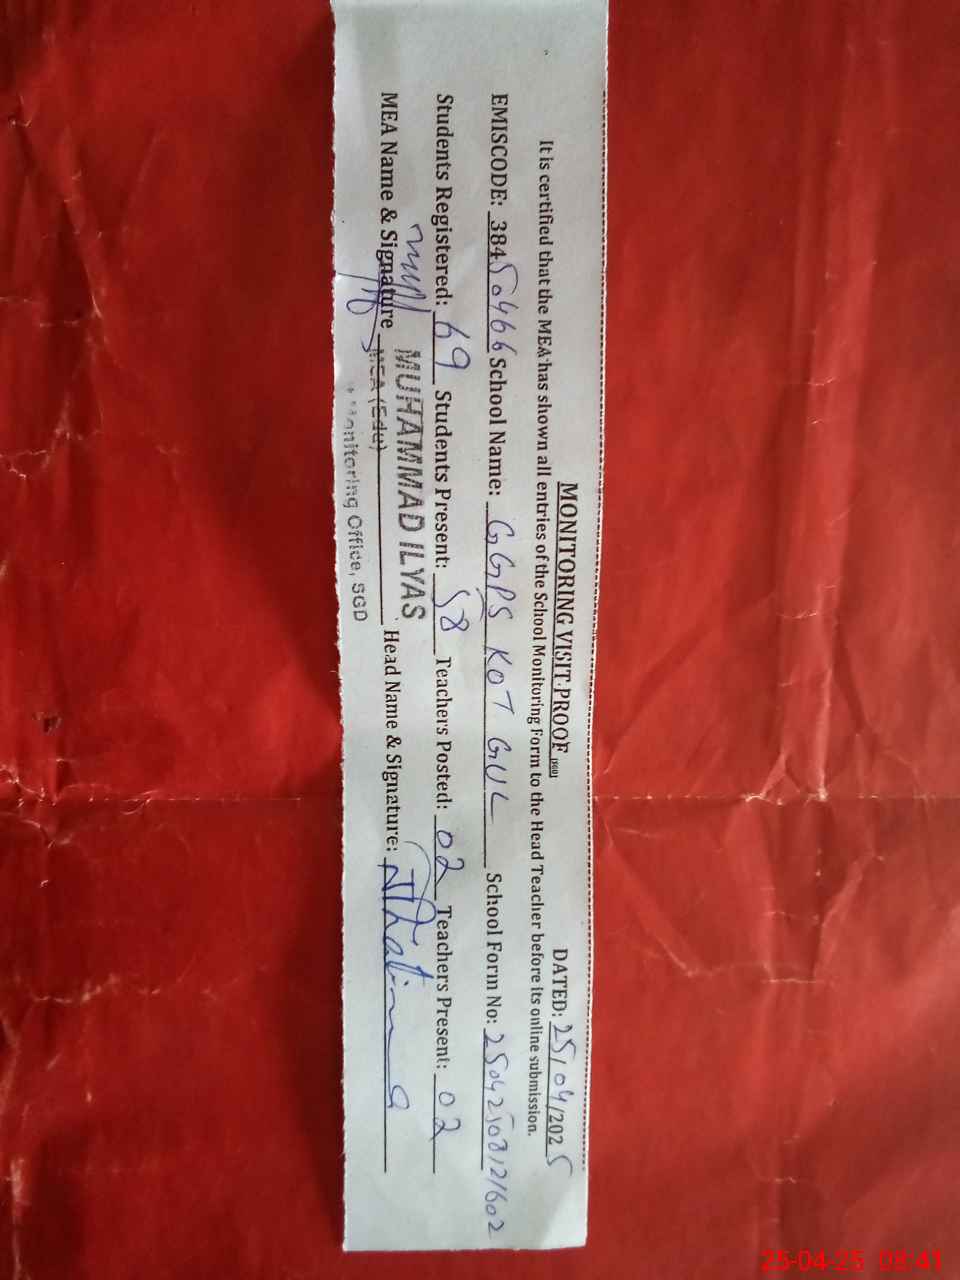 MONITORING VISIT PROOF DATED: 25/04/2025
It is certified that the MEA has shown all entries of the School Monitoring Form to the Head Teacher before its online submission.
EMISCODE: 38450466 School Name: GGPS KOT GUL School Form No: 25042508121602
Students Registered: 69 Students Present: 58 Teachers Posted: 02 Teachers Present: 02
MUHAMMAD ILYAS
MEA Name & Signature Head Name & Signature:
MEA (Edu)
Monitoring Office, SGD
25-04-25 08:41